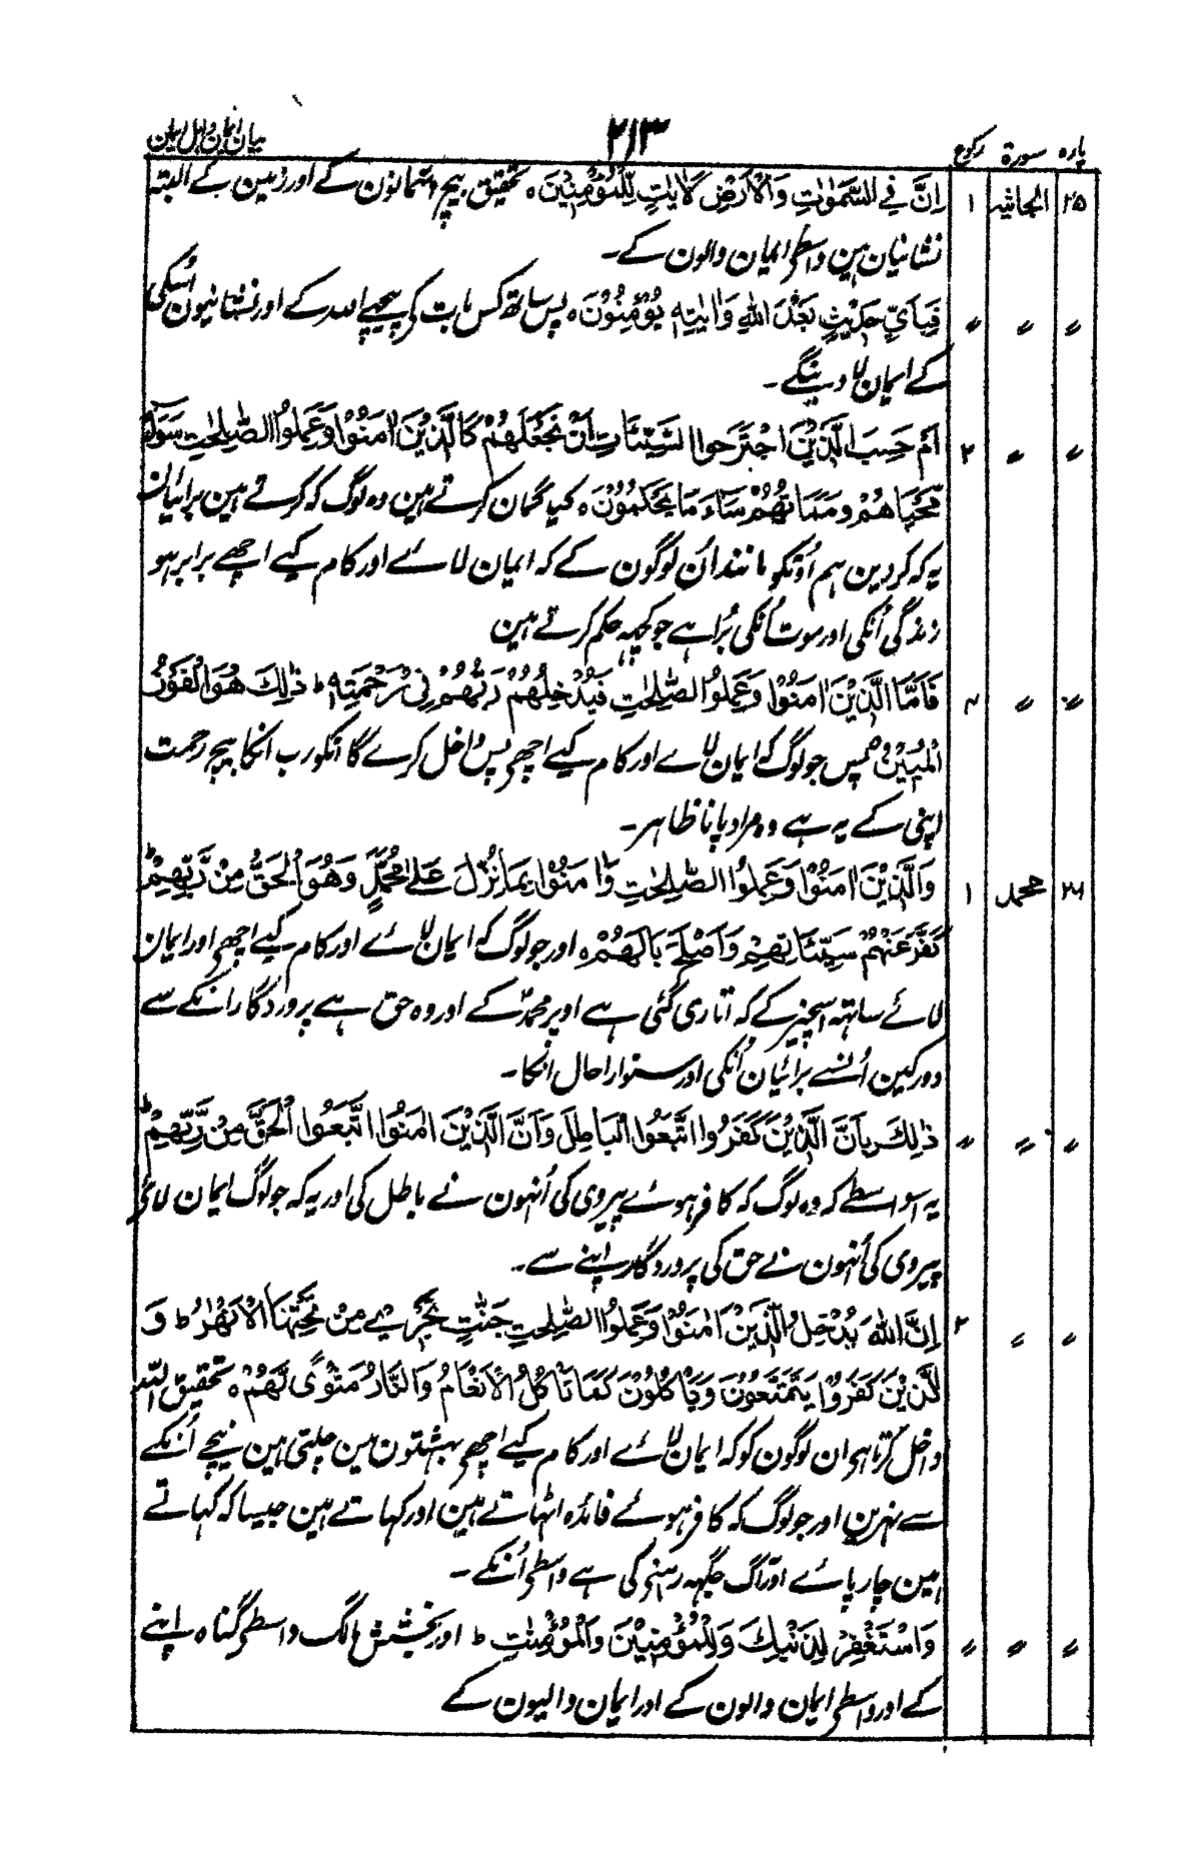 پارہ سورۃ رکوع ۲۱۳ بیان ایمان و اہل ایمان
۲۵ الجاثیہ ۱ اِنَّ فِی السَّمٰوٰتِ وَالْاَرْضِ لَاٰیٰتٍ لِّلْمُؤْمِنِیْنَ ہ تحقیق بیچ آسمانون کے اور زمین کے البتہ
نشانیان ہین واسطے ایمان والون کے۔
〃 〃 〃 فَبِاَیِّ حَدِیْثٍ بَعْدَ اللّٰہِ وَاٰیٰتِہٖ یُؤْمِنُوْنَ ہ پس ساتھ کس بات کر پیچھے اللہ کے اور نشانیون اُسکی
کے ایمان لاوینگے۔
〃 〃 ۲ اَمْ حَسِبَ الَّذِیْنَ اجْتَرَحُوا السَّیِّئَاتِ اَنْ نَّجْعَلَھُمْ کَالَّذِیْنَ اٰمَنُوْا وَعَمِلُوا الصّٰلِحٰتِ سَوَآءً
مَّحْیَاھُمْ وَمَمَاتُھُمْ سَآءَ مَا یَحْکُمُوْنَ ہ کیا گمان کرتے ہین وہ لوگ کہ کرتے ہین برائیان
یہ کہ کردین ہم اُونکو مانند اُن لوگون کے کہ ایمان لائے اور کام کیے اچھے برابر ہو
زندگی اُنکی اور موت اُنکی بُرا ہے جو کچھہ حکم کرتے ہین
〃 〃 ۴ فَاَمَّا الَّذِیْنَ اٰمَنُوْا وَعَمِلُوا الصّٰلِحٰتِ فَیُدْخِلُھُمْ رَبُّھُمْ فِیْ رَحْمَتِہٖ ط ذٰلِکَ ھُوَ الْفَوْزُ
الْمُبِیْنُ ہ پس جو لوگ کہ ایمان لائے اور کام کیے اچھے پس داخل کرے گا انکو رب انکا بیچ رحمت
اپنی کے یہ ہے وہ مراد پانا ظاہر۔
۲۶ محمد ۱ وَالَّذِیْنَ اٰمَنُوْا وَعَمِلُوا الصّٰلِحٰتِ وَاٰمَنُوْا بِمَا نُزِّلَ عَلٰی مُحَمَّدٍ وَّھُوَ الْحَقُّ مِنْ رَّبِّھِمْ
کَفَّرَ عَنْھُمْ سَیِّئَاتِھِمْ وَاَصْلَحَ بَالَھُمْ ہ اور جو لوگ کہ ایمان لائے اور کام کیے اچھے اور ایمان
لائے ساتھہ اسچیز کے کہ اتاری گئی ہے اوپر محمدؐ کے اور وہ حق ہے پروردگار انکے سے
دور کین اُنسے برائیان اُنکی اور سنوارا حال انکا۔
〃 〃 〃 ذٰلِکَ بِاَنَّ الَّذِیْنَ کَفَرُوا اتَّبَعُوا الْبَاطِلَ وَاَنَّ الَّذِیْنَ اٰمَنُوا اتَّبَعُوا الْحَقَّ مِنْ رَّبِّھِمْ ط
یہ اسواسطے کہ وہ لوگ کہ کافر ہوئے پیروی کی اُنہون نے باطل کی اور یہ کہ جو لوگ ایمان لائے
پیروی کی اُنہون نے حق کی پروردگار اپنے سے۔
〃 〃 ۲ اِنَّ اللّٰہَ یُدْخِلُ الَّذِیْنَ اٰمَنُوْا وَعَمِلُوا الصّٰلِحٰتِ جَنّٰتٍ تَجْرِیْ مِنْ تَحْتِھَا الْاَنْھٰرُ ط وَ
الَّذِیْنَ کَفَرُوْا یَتَمَتَّعُوْنَ وَیَاْکُلُوْنَ کَمَا تَاْکُلُ الْاَنْعَامُ وَالنَّارُ مَثْوًی لَّھُمْ ہ تحقیق اللہ
داخل کرتا ہی ان لوگون کو کہ ایمان لائے اور کام کیے اچھے بہشتون مین چلتی ہین نیچے اُنکے
سے نہرین اور جو لوگ کہ کافر ہوئے فائدہ اٹھاتے ہین اور کہاتے ہین جیسا کہ کہاتے
ہین چارپائے اور آگ جگہہ رہنے کی ہے واسطے اُنکے۔
〃 〃 〃 وَاسْتَغْفِرْ لِذَنْبِکَ وَلِلْمُؤْمِنِیْنَ وَالْمُؤْمِنٰتِ ط اور بخشش مانگ واسطے گناہ اپنے
کے اور واسطے ایمان والون کے اور ایمان والیون کے